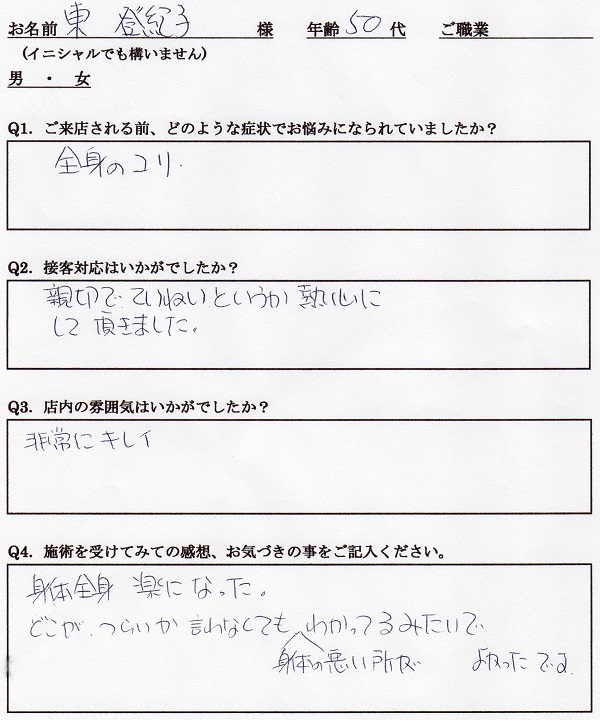 お名前 東 登紀子 様 年齢 50 代 ご職業
(イニシャルでも構いません)
男 ・ 女
Q1. ご来店される前、どのような症状でお悩みになられていましたか?
全身のコリ.
Q2. 接客対応はいかがでしたか?
親切で ていねいというか 熱心に
して 頂きました。
Q3. 店内の雰囲気はいかがでしたか?
非常にキレイ
Q4. 施術を受けてみての感想、お気づきの事をご記入ください。
身体全身 楽になった。
どこが、つらいか 言わなくても わかってるみたいで
身体の悪い所が よかったです.